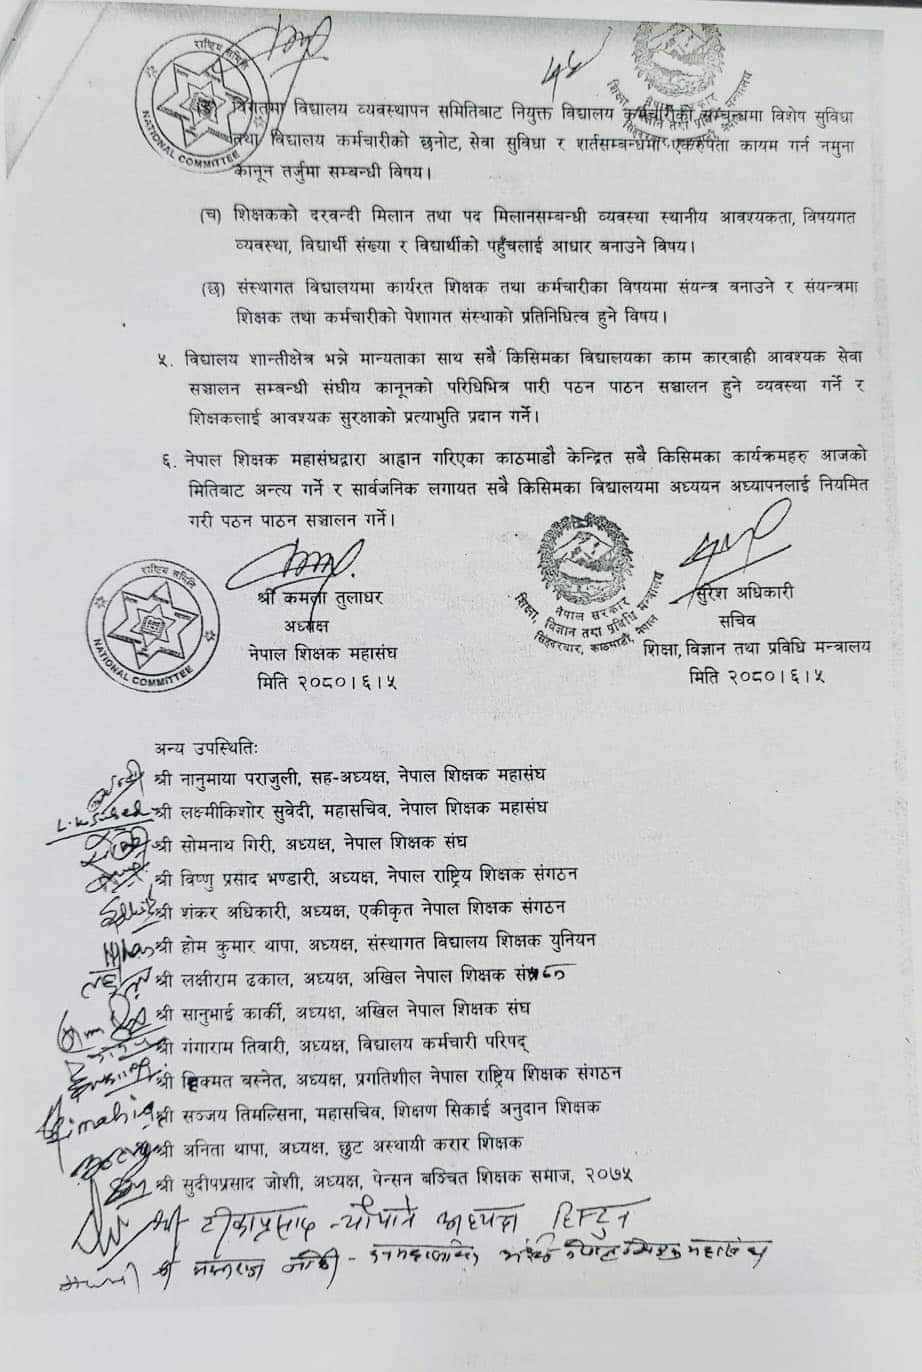 राष्ट्रिय समिति
NATIONAL COMMITTEE
विगतमा विद्यालय व्यवस्थापन समितिबाट नियुक्त विद्यालय कर्मचारीको सम्बन्धमा विशेष सुविधा
तथा विद्यालय कर्मचारीको छनोट, सेवा सुविधा र शर्तसम्बन्धमा एकरुपता कायम गर्न नमुना
कानून तर्जुमा सम्बन्धी विषय।
(च) शिक्षकको दरवन्दी मिलान तथा पद मिलानसम्बन्धी व्यवस्था स्थानीय आवश्यकता, विषयगत
व्यवस्था, विद्यार्थी संख्या र विद्यार्थीको पहुँचलाई आधार बनाउने विषय।
(छ) संस्थागत विद्यालयमा कार्यरत शिक्षक तथा कर्मचारीका विषयमा संयन्त्र बनाउने र संयन्त्रमा
शिक्षक तथा कर्मचारीको पेशागत संस्थाको प्रतिनिधित्व हुने विषय।
५. विद्यालय शान्तीक्षेत्र भन्ने मान्यताका साथ सबै किसिमका विद्यालयका काम कारवाही आवश्यक सेवा
सञ्चालन सम्बन्धी संघीय कानूनको परिधिभित्र पारी पठन पाठन सञ्चालन हुने व्यवस्था गर्ने र
शिक्षकलाई आवश्यक सुरक्षाको प्रत्याभुति प्रदान गर्ने।
६. नेपाल शिक्षक महासंघद्वारा आह्वान गरिएका काठमाडौ केन्द्रित सबै किसिमका कार्यक्रमहरु आजको
मितिबाट अन्त्य गर्ने र सार्वजनिक लगायत सबै किसिमका विद्यालयमा अध्ययन अध्यापनलाई नियमित
गरी पठन पाठन सञ्चालन गर्ने।
राष्ट्रिय समिति
NATIONAL COMMITTEE
श्री कमला तुलाधर
अध्यक्ष
नेपाल शिक्षक महासंघ
मिति २०८०।६।५
नेपाल सरकार
शिक्षा, विज्ञान तथा प्रविधि मन्त्रालय
सिंहदरबार, काठमाडौं, नेपाल
सुरेश अधिकारी
सचिव
शिक्षा, विज्ञान तथा प्रविधि मन्त्रालय
मिति २०८०।६।५
अन्य उपस्थितिः
श्री नानुमाया पराजुली, सह-अध्यक्ष, नेपाल शिक्षक महासंघ
श्री लक्ष्मीकिशोर सुवेदी, महासचिव, नेपाल शिक्षक महासंघ
श्री सोमनाथ गिरी, अध्यक्ष, नेपाल शिक्षक संघ
श्री विष्णु प्रसाद भण्डारी, अध्यक्ष, नेपाल राष्ट्रिय शिक्षक संगठन
श्री शंकर अधिकारी, अध्यक्ष, एकीकृत नेपाल शिक्षक संगठन
श्री होम कुमार थापा, अध्यक्ष, संस्थागत विद्यालय शिक्षक युनियन
श्री लक्षीराम ढकाल, अध्यक्ष, अखिल नेपाल शिक्षक
श्री सानुभाई कार्की, अध्यक्ष, अखिल नेपाल शिक्षक संघ
श्री गंगाराम तिवारी, अध्यक्ष, विद्यालय कर्मचारी परिषद्
श्री हिक्मत बस्नेत, अध्यक्ष, प्रगतिशील नेपाल राष्ट्रिय शिक्षक संगठन
श्री सञ्जय तिमल्सिना, महासचिव, शिक्षण सिकाई अनुदान शिक्षक
श्री अनिता थापा, अध्यक्ष, छुट अस्थायी करार शिक्षक
श्री सुदीपप्रसाद जोशी, अध्यक्ष, पेन्सन बञ्चित शिक्षक समाज, २०७५
श्री टीकाप्रसाद न्यौपाने अध्यक्ष
श्री